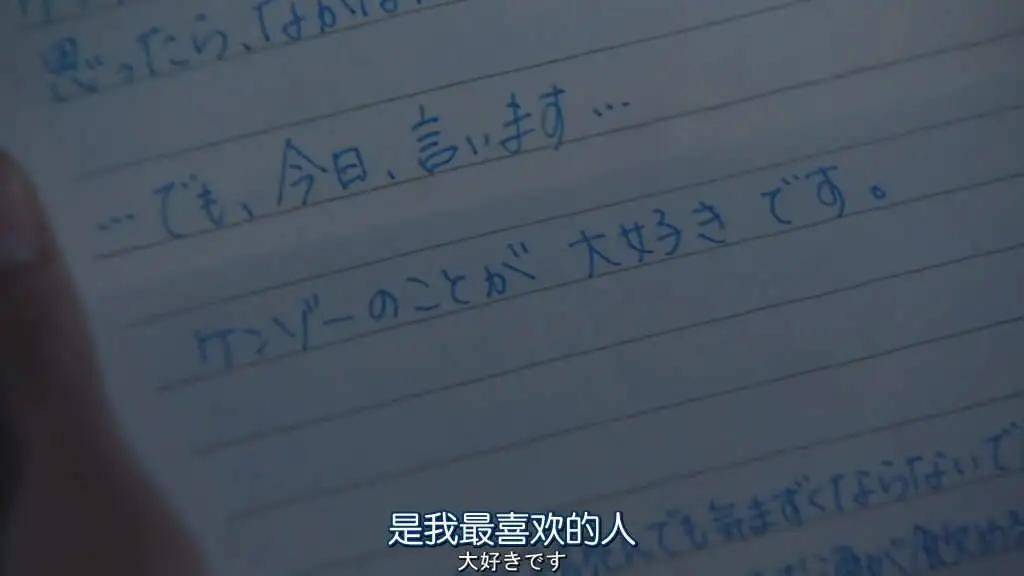 思ったら、なかな
…でも、今日、言います…
ケンゾーのことが 大好き です。
でも気まずくならないで
是我最喜欢的人
大好きです